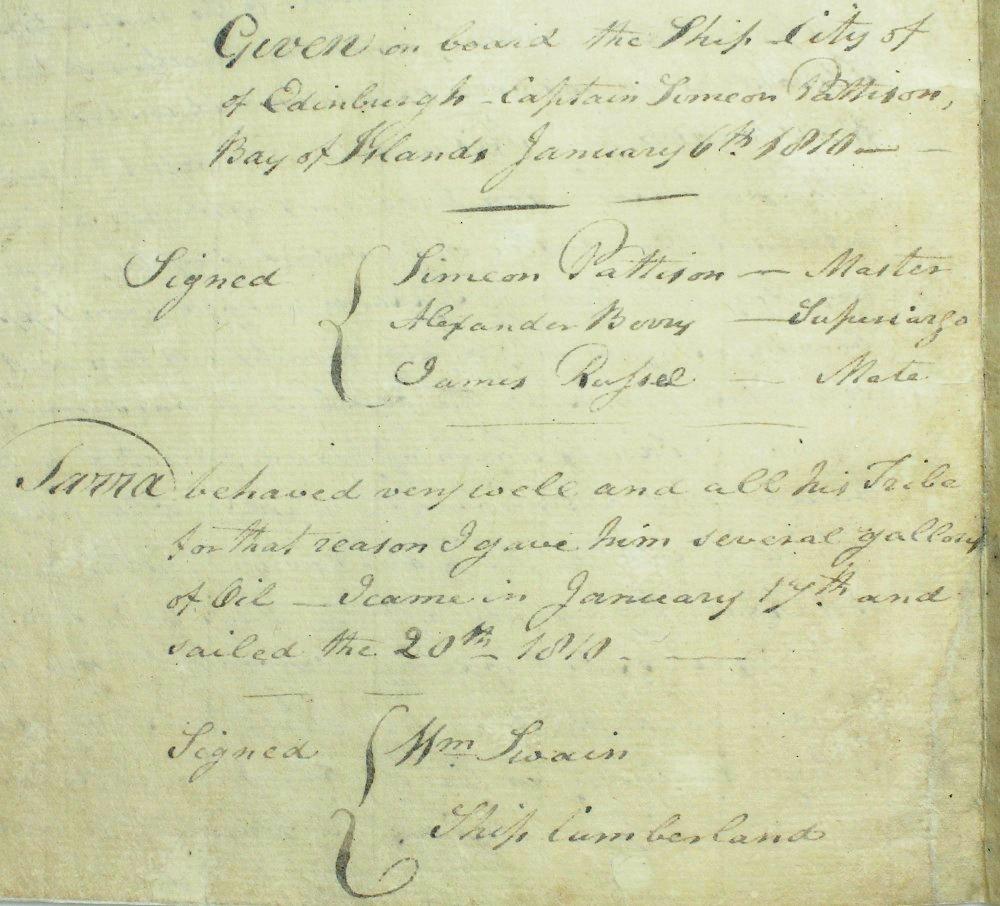 Given on board the Ship City of
of Edinburgh - Captain Simeon Pattison,
Bay of Islands January 6th 1810 —
Signed { Simeon Pattison — Master
Alexander Berry — Supercargo
James Russel — Mate
Tarra behaved very well and all his Tribe
for that reason I gave him several gallons
of Oil — I came in January 17th and
sailed the 20th 1810 - —
Signed { Wm Swain
Ship Cumberland